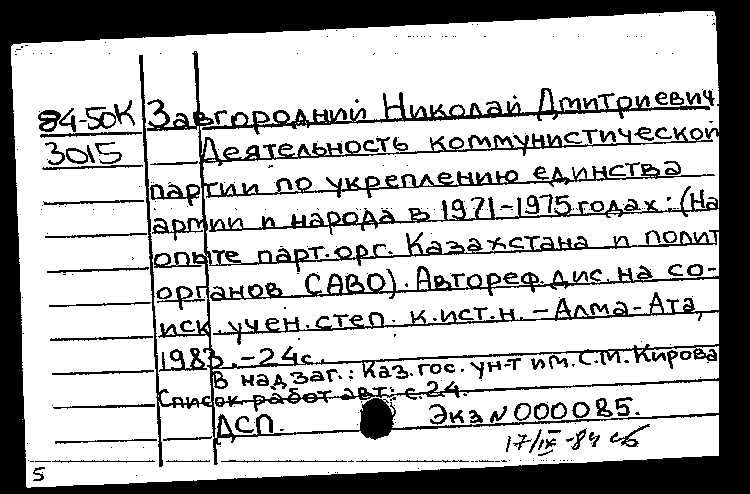 84-50К Завгородний Николай Дмитриевич.
3015 Деятельность коммунистической
партии по укреплению единства
армии и народа в 1971-1975 годах: (На
опыте парт. орг. Казахстана и полит
органов САВО). Автореф. дис. на со-
иск. учен. степ. к. ист. н. - Алма-Ата,
1983. - 24 с.
В надзаг.: Каз. гос. ун-т им. С.М. Кирова
Список работ авт.: с. 24.
ДСП. Экз N 000085.
17/IX-84
5